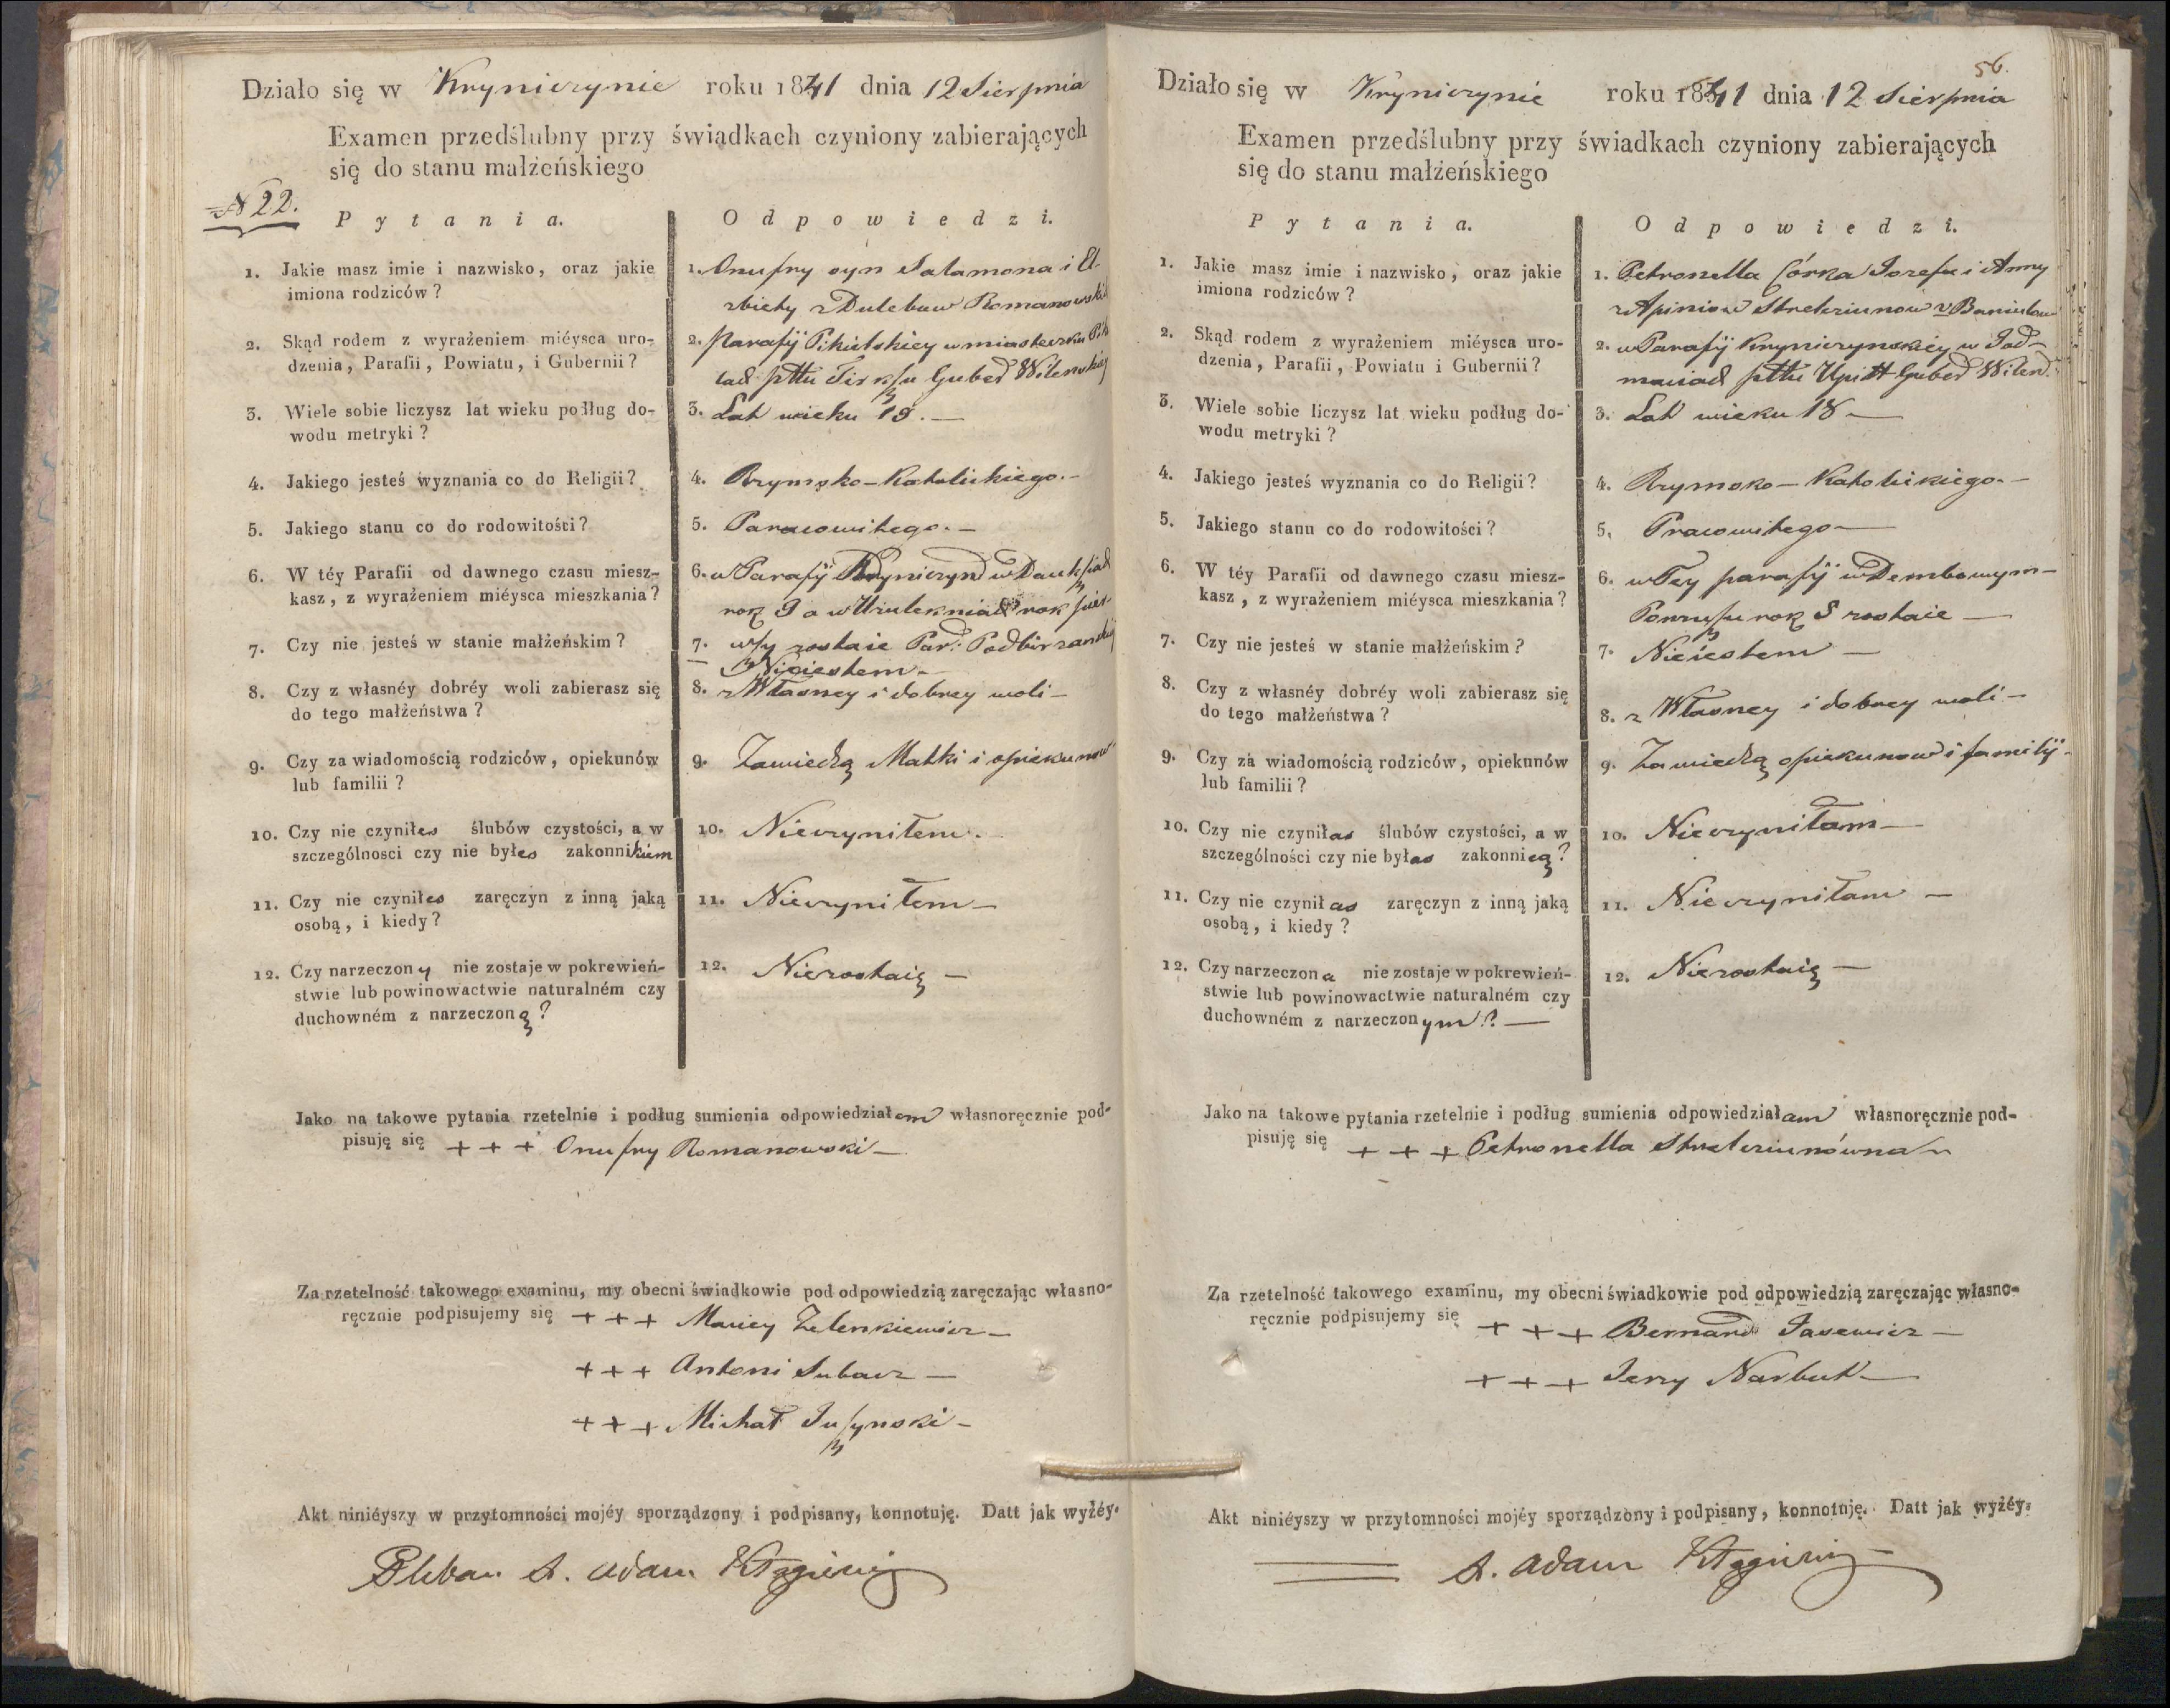 Działo się w Kryniczynie roku 1841 dnia 12 Sierpnia
Examen przedślubny przy świadkach czyniony zabierających
się do stanu małżeńskiego
N 22.
Pytania.
Odpowiedzi.
1. Jakie masz imie i nazwisko, oraz jakie
imiona rodziców?
1. Onufry syn Salamona i El-
zbiety z Dulebow Romanowskich
2. Skąd rodem z wyrażeniem miéysca uro-
dzenia, Parafii, Powiatu, i Gubernii?
2. Parafij w miasteczku
pttu Guber Wilenskiey
3. Wiele sobie liczysz lat wieku podług do-
wodu metryki?
3. Lat wieku 19.—
4. Jakiego jesteś wyznania co do Religii?
4. Rzymsko-Katolickiego.-
5. Jakiego stanu co do rodowitości?
5. Paracowitego.-
6. W téy Parafii od dawnego czasu miesz-
kasz, z wyrażeniem miéysca mieszkania?
6. w Parafij
rok a w rok
7. Czy nie jesteś w stanie małżeńskim?
7. zostaie Par: Podbirzanskiey
Nieiestem-
8. Czy z własnéy dobréy woli zabierasz się
do tego małżeństwa?
8. z Własney i dobrey woli-
9. Czy za wiadomością rodziców, opiekunów
lub familii?
9. Zawiedzą Matki i opiekunow-
10. Czy nie czyniłes ślubów czystości, a w
szczególnosci czy nie byłes zakonnikiem
10. Nieczyniłem.
11. Czy nie czyniłes zaręczyn z inną jaką
osobą, i kiedy?
11. Nieczyniłem-
12. Czy narzeczony nie zostaje w pokrewień-
stwie lub powinowactwie naturalném czy
duchowném z narzeczoną?
12. Niezostaię-
Jako na takowe pytania rzetelnie i podług sumienia odpowiedziałem własnoręcznie pod-
pisuję się +++ Onufry Romanowski-
Za rzetelność takowego examinu, my obecni świadkowie pod odpowiedzią zaręczając własno-
ręcznie podpisujemy się +++ Maciey Zelenkiewicz-
+++ Antoni Subacz-
+++ Michał
Akt niniéyszy w przytomności mojéy sporządzony i podpisany, konnotuję. Datt jak wyżéy.
Pleban X. Adam
56.
Działo się w Kryniczynie roku 1841 dnia 12 Sierpnia
Examen przedślubny przy świadkach czyniony zabierających
się do stanu małżeńskiego
Pytania.
Odpowiedzi.
1. Jakie masz imie i nazwisko, oraz jakie
imiona rodziców?
1. Petronella Córka Jozefa i Anny
2. Skąd rodem z wyrażeniem miéysca uro-
dzenia, Parafii, Powiatu i Gubernii?
2. w Parafij Kryniczynskiey w
pttu Upitt Guber Wilen.
3. Wiele sobie liczysz lat wieku podług do-
wodu metryki?
3. Lat wieku 18-
4. Jakiego jesteś wyznania co do Religii?
4. Rzymsko-Katolickiego.-
5. Jakiego stanu co do rodowitości?
5. Pracowitego-
6. W téy Parafii od dawnego czasu miesz-
kasz, z wyrażeniem miéysca mieszkania?
6. w Tey parafij w Dembowym-
rok zostaie-
7. Czy nie jesteś w stanie małżeńskim?
7. Nieiestem-
8. Czy z własnéy dobréy woli zabierasz się
do tego małżeństwa?
8. z Własney i dobrey woli-
9. Czy za wiadomością rodziców, opiekunów
lub familii?
9. Zawiedzą opiekunow i familij-
10. Czy nie czyniłas ślubów czystości, a w
szczególności czy nie byłas zakonnicą?
10. Nieczyniłam-
11. Czy nie czyniłas zaręczyn z inną jaką
osobą, i kiedy?
11. Nieczyniłam-
12. Czy narzeczona nie zostaje w pokrewień-
stwie lub powinowactwie naturalném czy
duchowném z narzeczonym?—
12. Niezostaię-
Jako na takowe pytania rzetelnie i podług sumienia odpowiedziałam własnoręcznie pod-
pisuję się +++ Petronella
Za rzetelność takowego examinu, my obecni świadkowie pod odpowiedzią zaręczając własno-
ręcznie podpisujemy się +++ Bernard Jasewicz-
+++ Jerzy Narbut-
Akt niniéyszy w przytomności mojéy sporządzony i podpisany, konnotuję. Datt jak wyżéy.
X. Adam